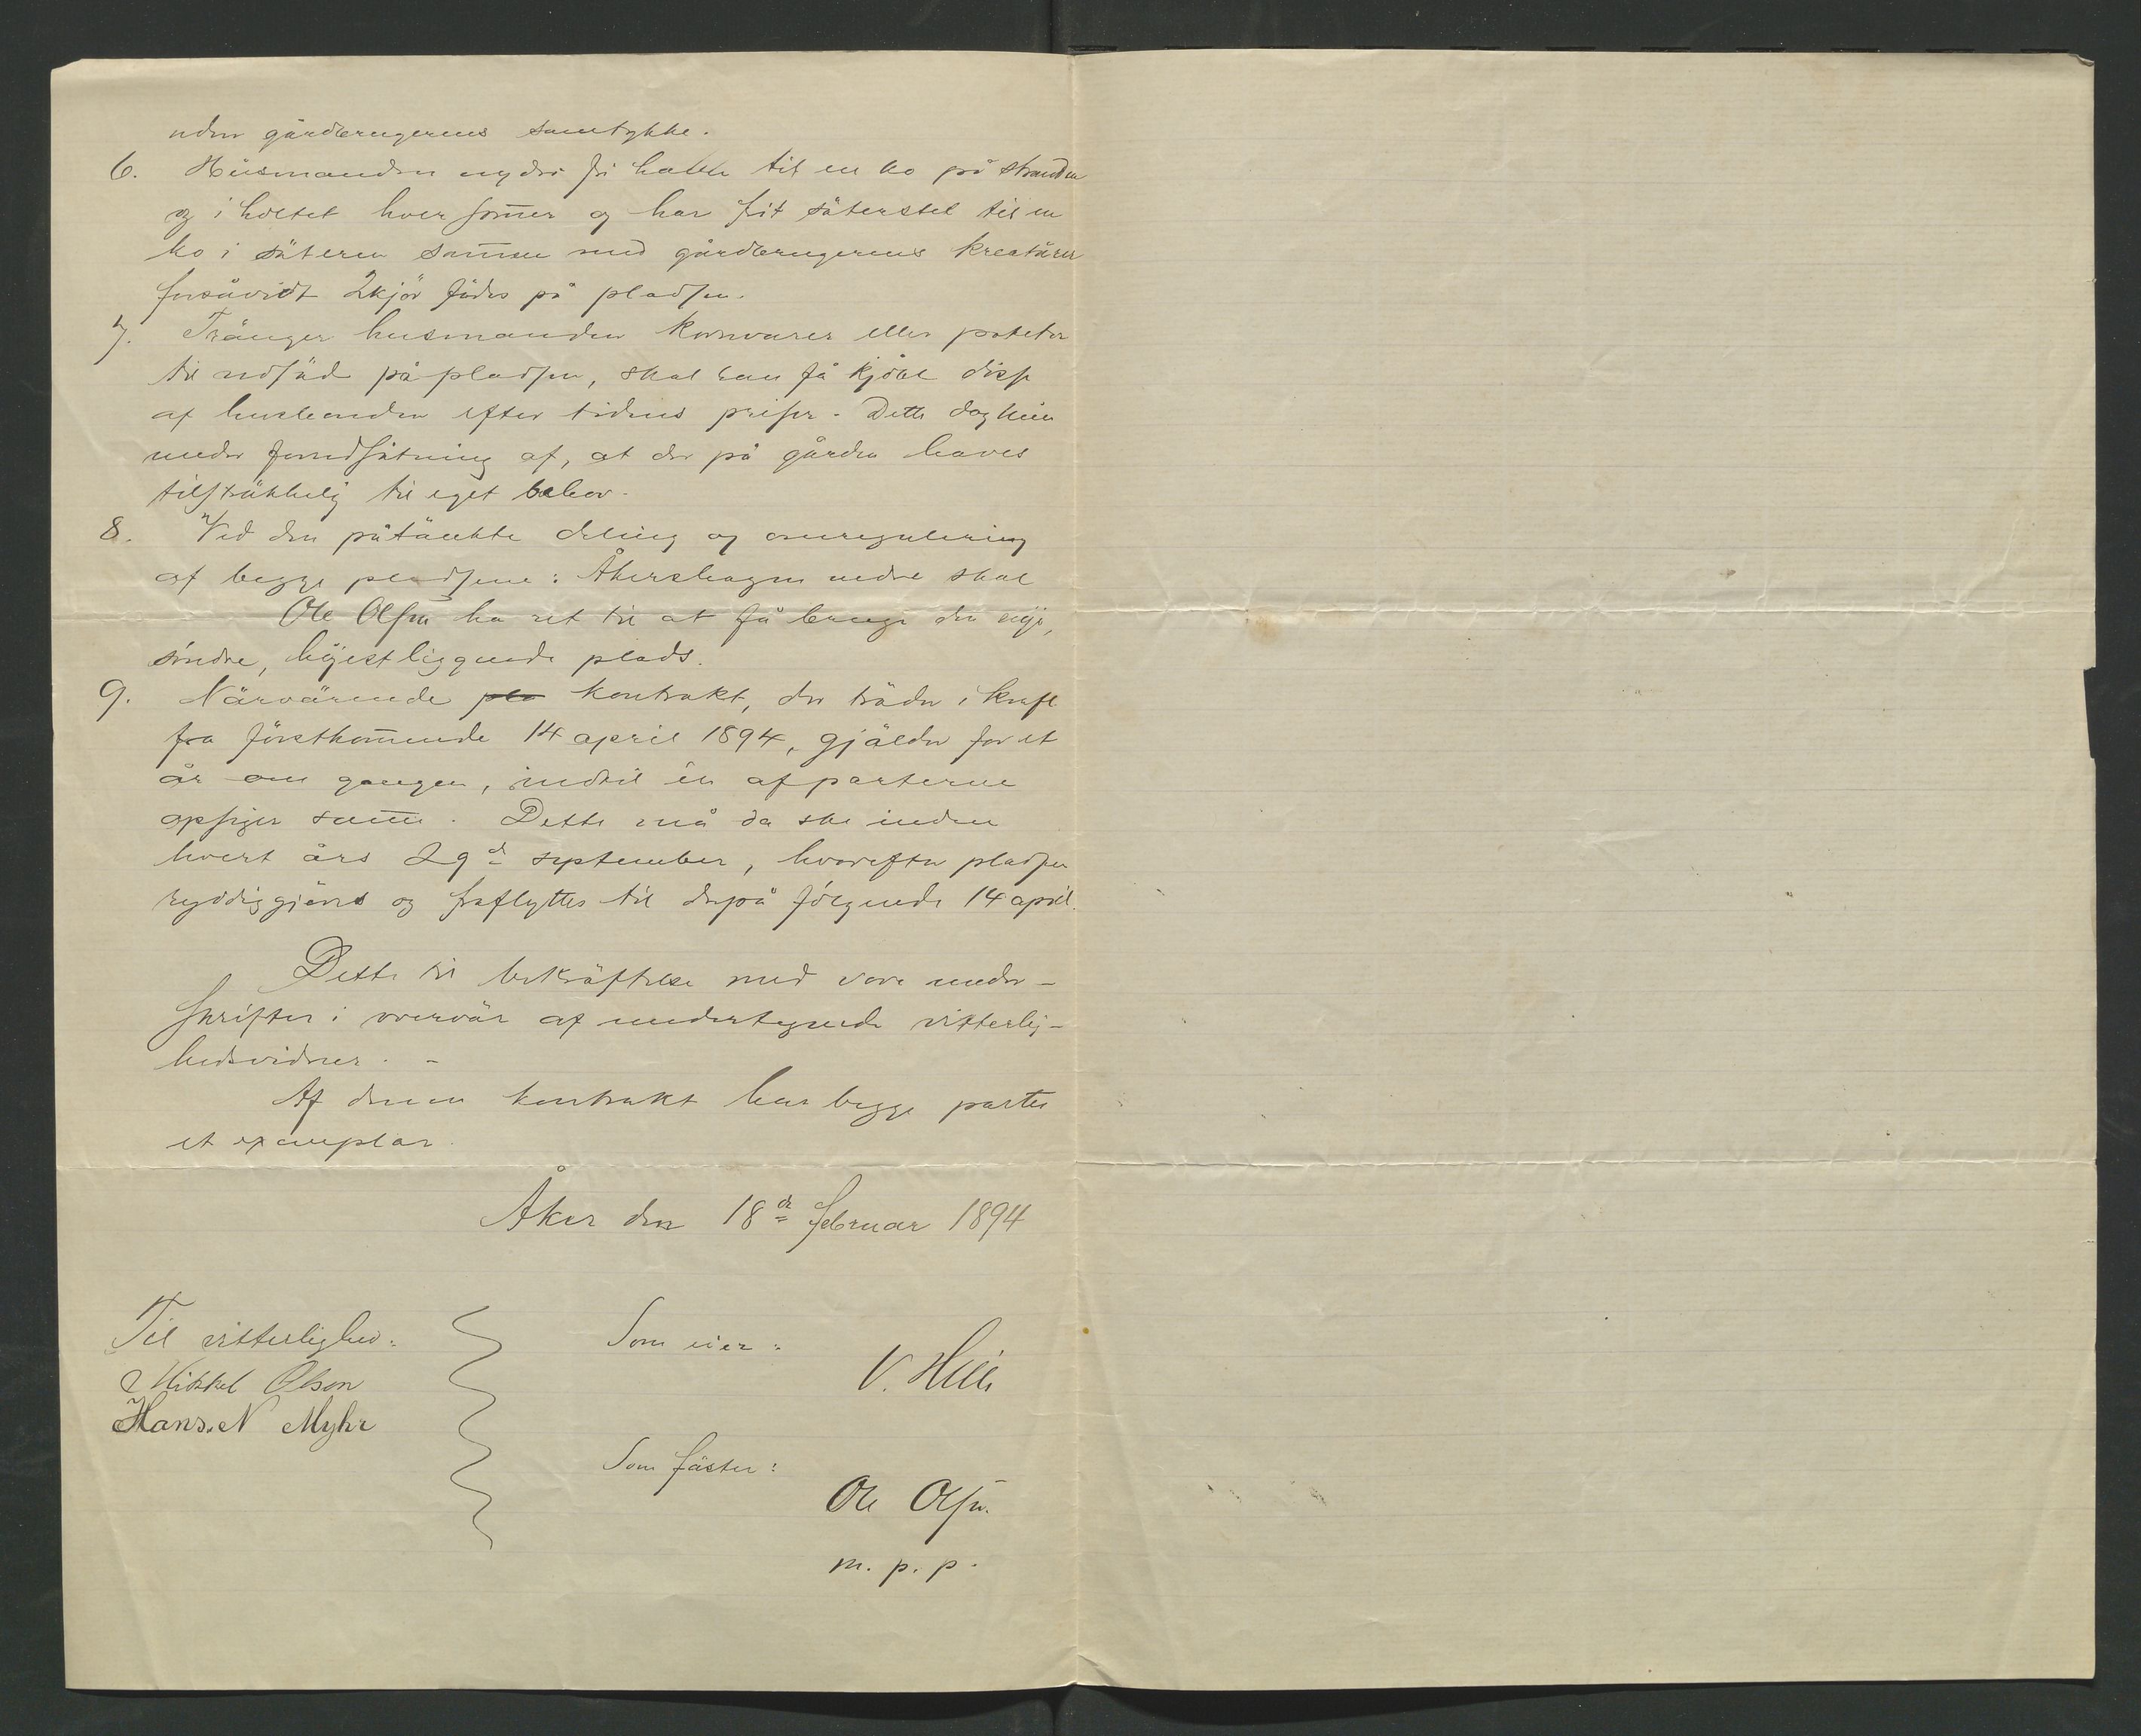 uden gårdbrugerens samtykke.
6. Husmanden nyder fri havn til en ko på stranden
og i holtet hver som̅er og har frit säterstel til en
ko i säteren sam̅en med gårdbrugerens kreatürer
forsåvidt 2 kjör födes på pladsen.
7. Tränger husmanden kornvarer eller poteter
til udsäd på pladsen, skal han få kjöbt disse
af husbonden efter tidens priser. Dette dog kun
under forudsätning af, at der på gården haves
tilsträkkelig til eget behov.
8. Ved den påtänkte deling og omregulering
af begge pladsene: Åkershagen nedre skal
Ole Olsen ha ret til at få bruge den
söndre, höjestliggende plads.
9. Närvärende pla kontrakt, der träder i kraft
fra förstkom̅ende 14 april 1894, gjälder for et
år om gangen, indtil én af parterne
opsiger sam̅e. Dette må da ske inden
hvert års 29de september, hvorefter pladsen
ryddiggjöres og fraflyttes til derpå fölgende 14 april.
Dette til bekräftelse med vore under-
skrifter i overvär af undertegnede vitterlig-
hedsvidner. -
Af denne kontrakt har begge parter
et exemplar.
Åker den 18de februar 1894
Til vitterlighed:
Mikkel Olson
Hans. N Myhr
Som eier:
V. Hille
Som fäster:
Ole Olsen.
m. p. p.